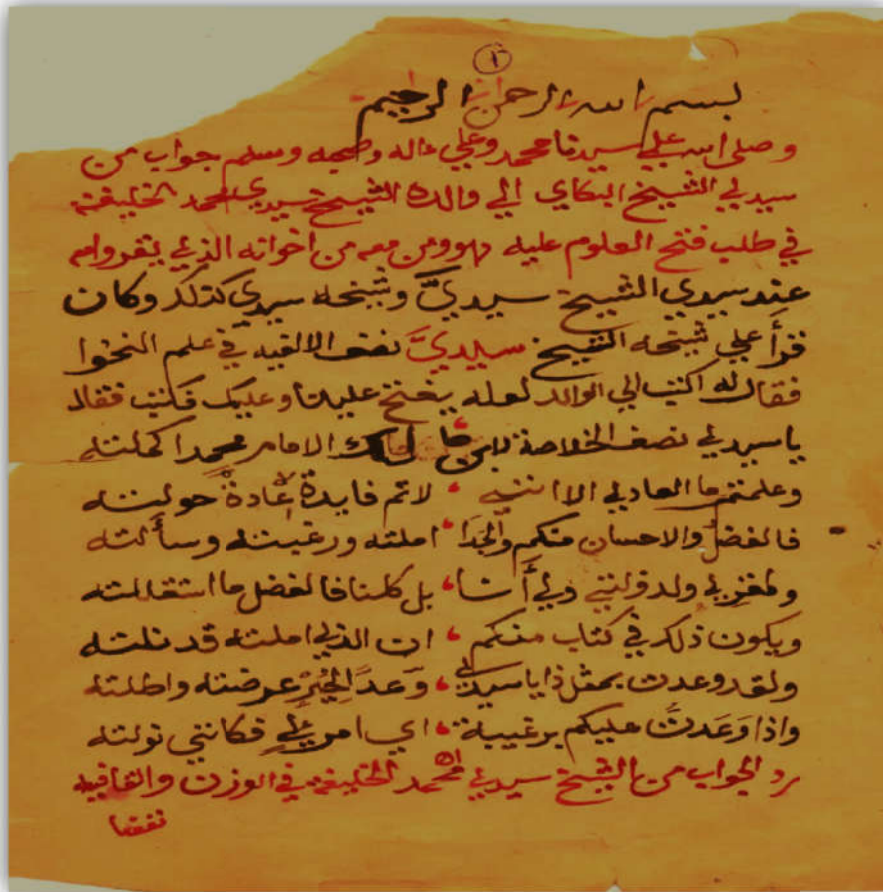 ١
بسم الله الرحمان الرحيم
وصلى الله علي سيدنا محمد وعلي ءاله وصحبه وسلم جواب من
سيدي الشيخ البكاي الي والده الشيخ سيدي محمد الخليفة
في طلب فتح العلوم عليه هوومن معه من اخوانه الذي يقروامه
عند سيدي الشيخ سيديَّ وشيخه سيدي كذلك وكان
قرأ علي شيخه الشيخ سيديَّ نصف الالفيه في علم النحوا
فقال له اكتب الي الوالد لعله يفتح علينا وعليك فكتب فقال
يا سيدي نصف الخلاصة لابن مالك الامام محمد اكملته
وعلمتي ما العادلي الا انني لا تم فايدة عادة حولته
فالفضل والاحسان منكم والجدا املته ورغبته وسألته
ولد ولي بل كلنا فالفضل ما استقللته
ويكون ذلك في كتاب منكم ان الذي املته قد نلته
ولقد وعدت بمثل ذا يا سيدي وَعدَ الخير عرضته واطلته
واذا وَعَدتَ عليكم برغيبة اي امرئ فكانني نولته
رد الجواب من الشيخ سيدي محمد الخليفة في الوزن والقافيه